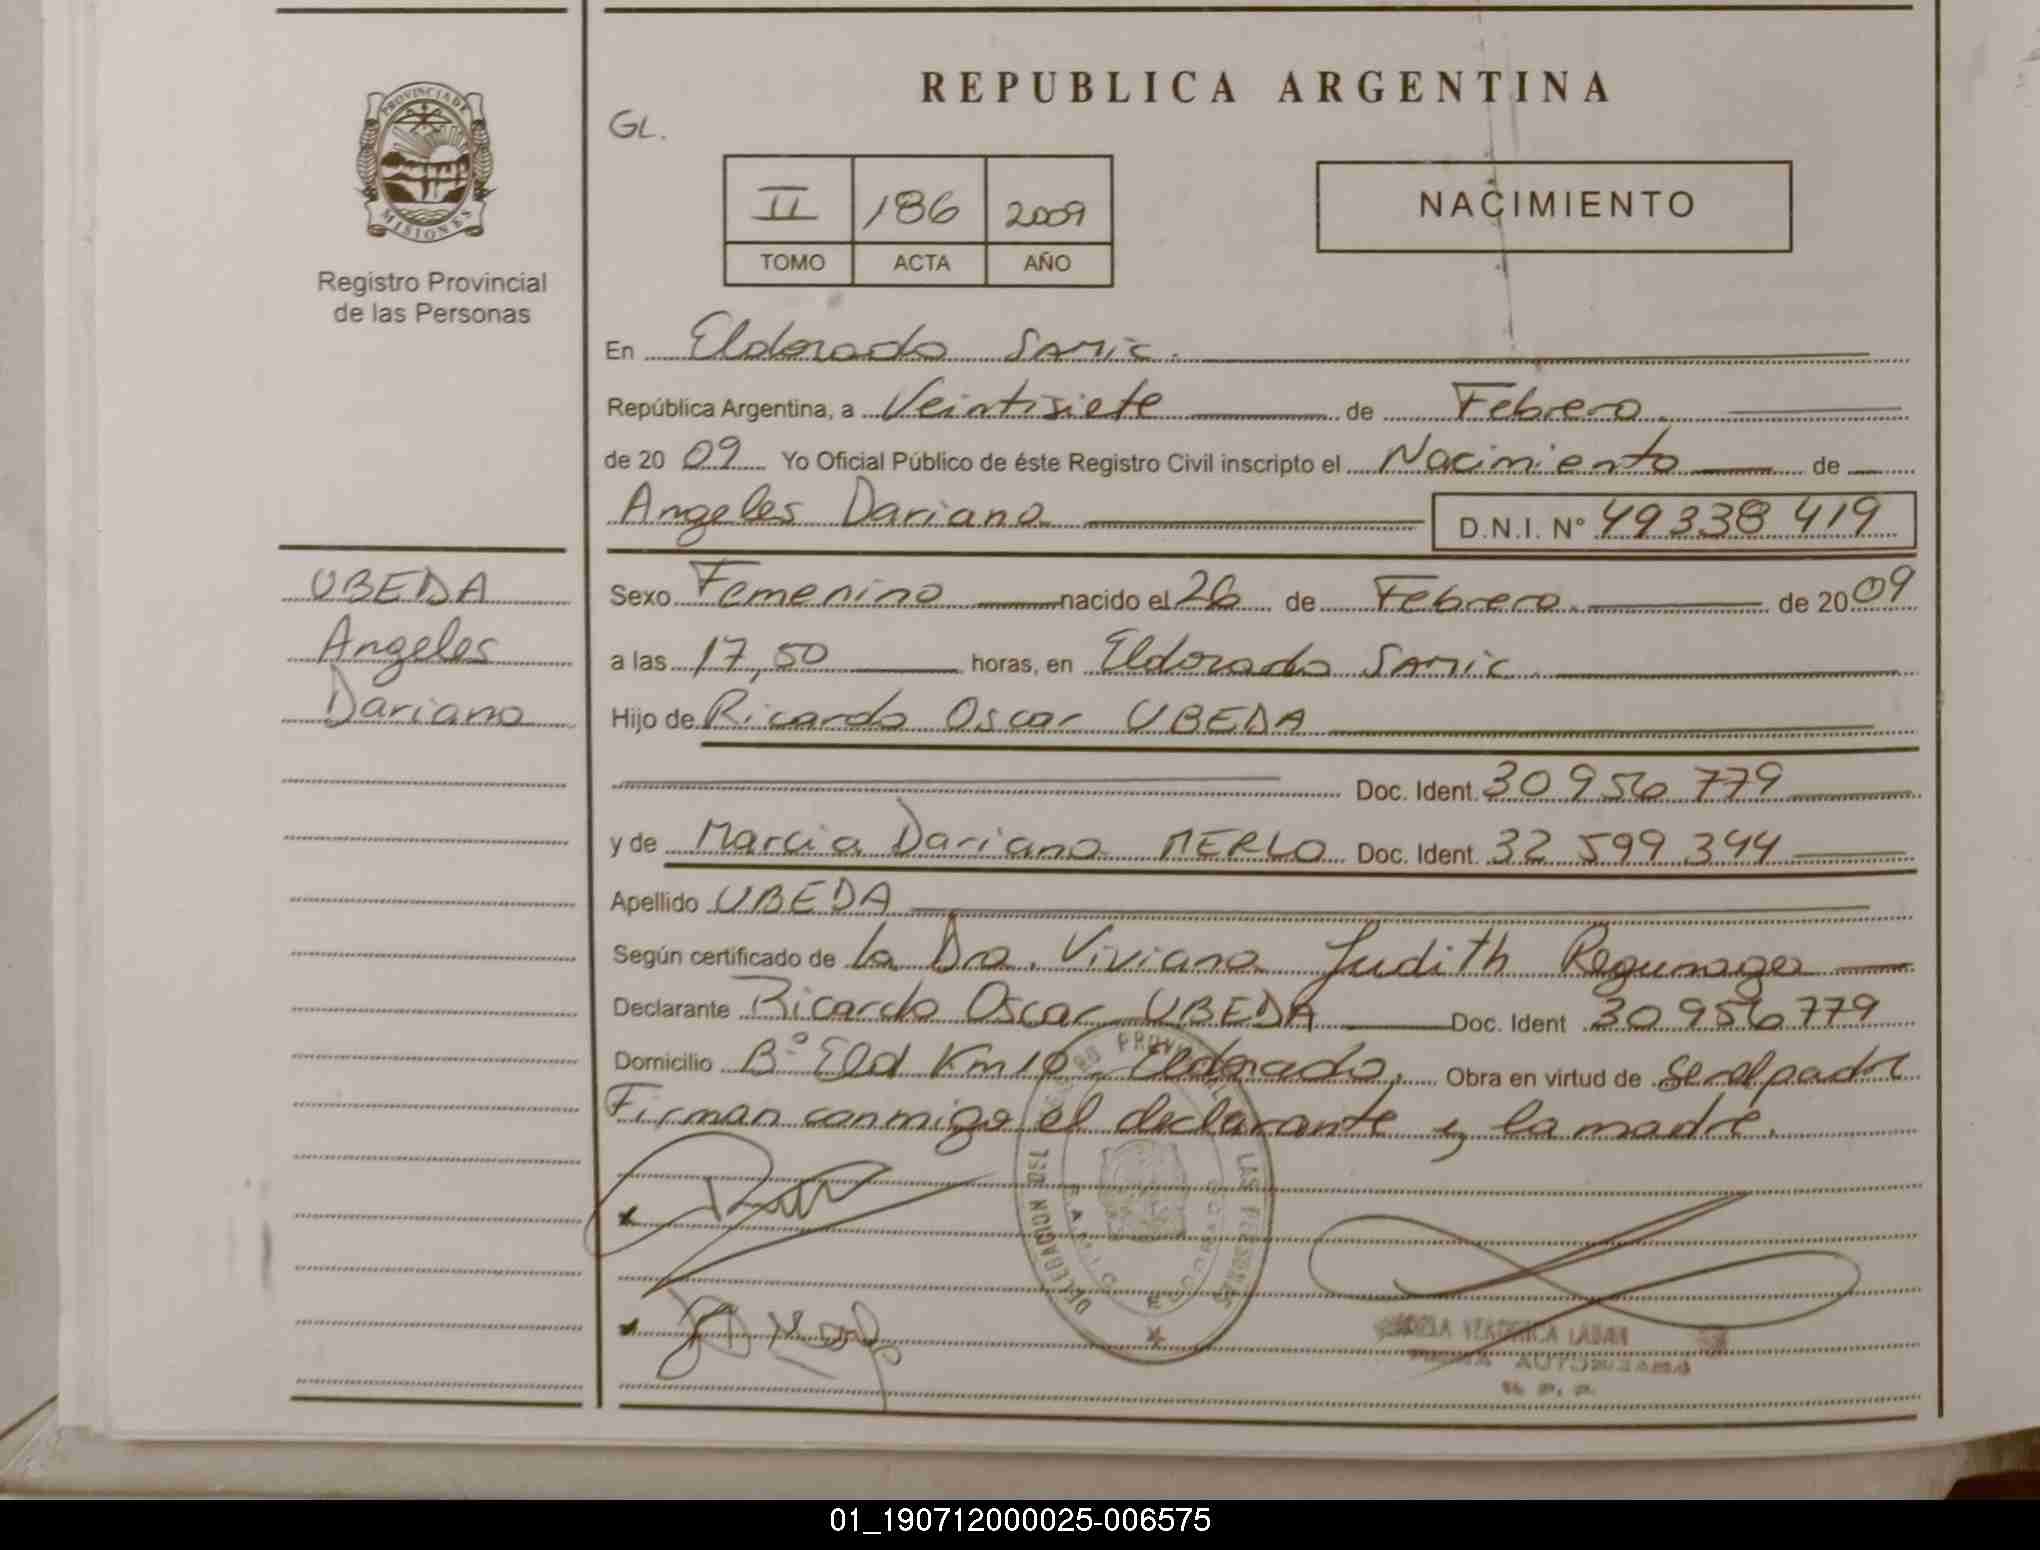 PROVINCIA DE
MISIONES
Registro Provincial
de las Personas
UBEDA
Angeles
Dariana
REPUBLICA ARGENTINA
GL.
II 186 2009
TOMO ACTA AÑO
NACIMIENTO
En Eldorado Samic.
República Argentina, a Veintisiete de Febrero.
de 2009 Yo Oficial Público de éste Registro Civil inscripto el Nacimiento de
Angeles Dariana D.N.I. Nº 49338419
Sexo Femenino nacido el 26 de Febrero. de 2009
a las 17,50 horas, en Eldorado Samic.
Hijo de Ricardo Oscar UBEDA
Doc. Ident. 30956779
y de Marcia Dariana MERLO Doc. Ident. 32 599 344
Apellido UBEDA
Según certificado de la Dra. Viviana Judith
Declarante Ricardo Oscar UBEDA Doc. Ident 30956779
Domicilio Bº Eld Km 10 Eldorado. Obra en virtud de ser el padre
Firman conmigo el declarante y la madre.
DELEGACION DEL REGISTRO PROVINCIAL LAS PERSONAS
VERONICA
01_190712000025-006575